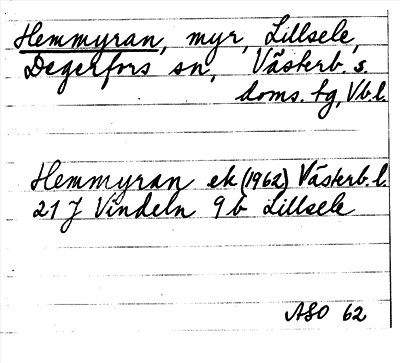 Hemmyran, myr, Lillsele,
Degerfors sn, Västerb. s.
doms. tg, Vb l.
Hemmyran ek (1962) Västerb. l.
21 J Vindeln 9 b Lillsele
ASO 62